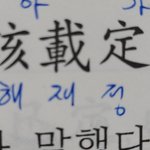 하 가
該載定
해 재 정
말했다